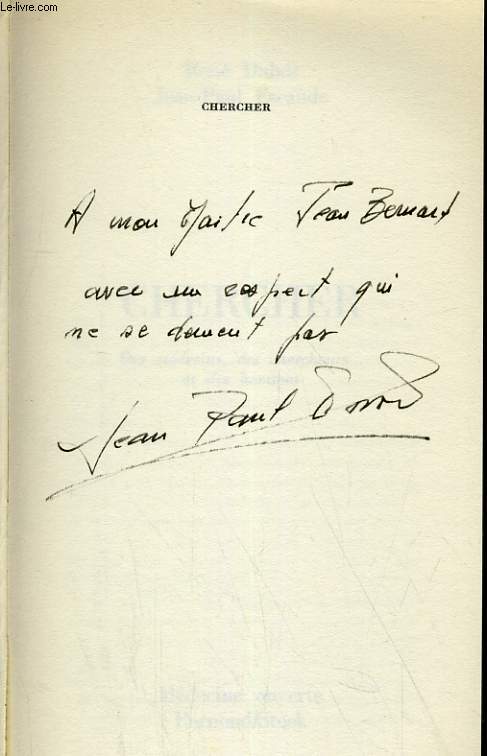 Le-livre.com
CHERCHER
A mon Maître Jean Bernard
avec un respect qui
ne se dément pas
Jean Paul